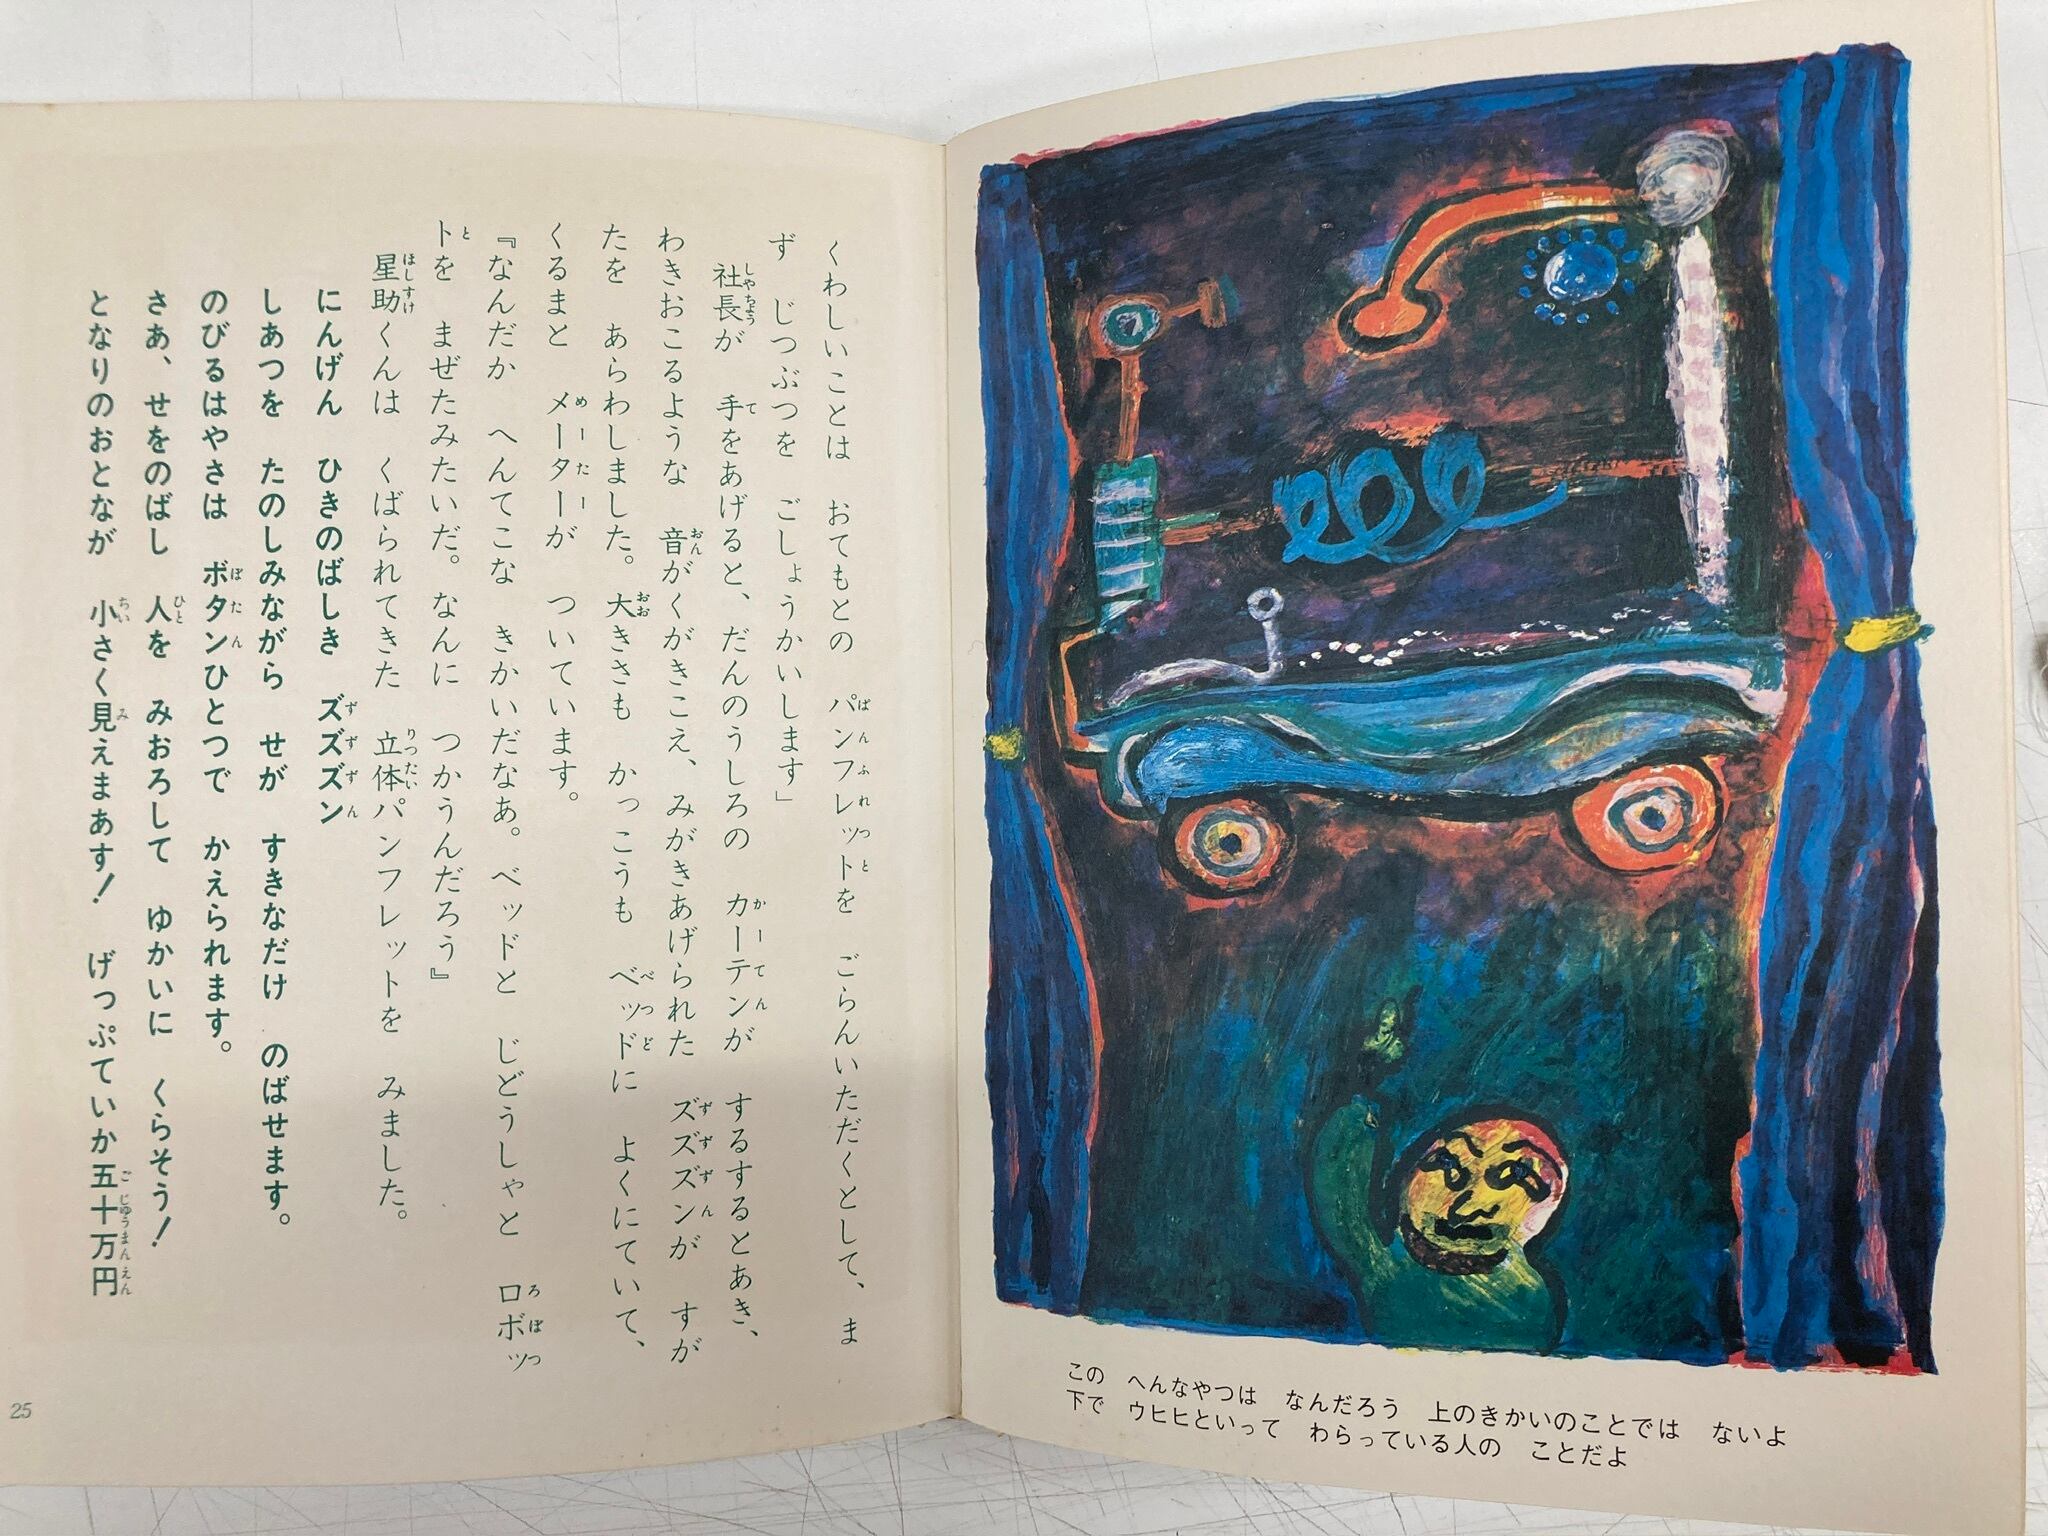 くわしいことは　おてもとの　パンフレットを　ごらんいただくとして、ま
ず　じつぶつを　ごしょうかいします」
社長が　手をあげると、だんのうしろの　カーテンが　するするとあき、
わきおこるような　音がくがきこえ、みがきあげられた　ズズズンが　すが
たを　あらわしました。大きさも　かっこうも　ベッドに　よくにていて、
くるまと　メーターが　ついています。
『なんだか　へんてこな　きかいだなあ。ベッドと　じどうしゃと　ロボッ
トを　まぜたみたいだ。なんに　つかうんだろう』
星助くんは　くばられてきた　立体パンフレットを　みました。
にんげん　ひきのばしき　ズズズン
しあつを　たのしみながら　せが　すきなだけ　のばせます。
のびるはやさは　ボタンひとつで　かえられます。
さあ、せをのばし　人を　みおろして　ゆかいに　くらそう！
となりのおとなが　小さく見えまあす！　げっぷていか五十万円
25
この　へんなやつは　なんだろう　上のきかいのことでは　ないよ
下で　ウヒヒといって　わらっている人の　ことだよ